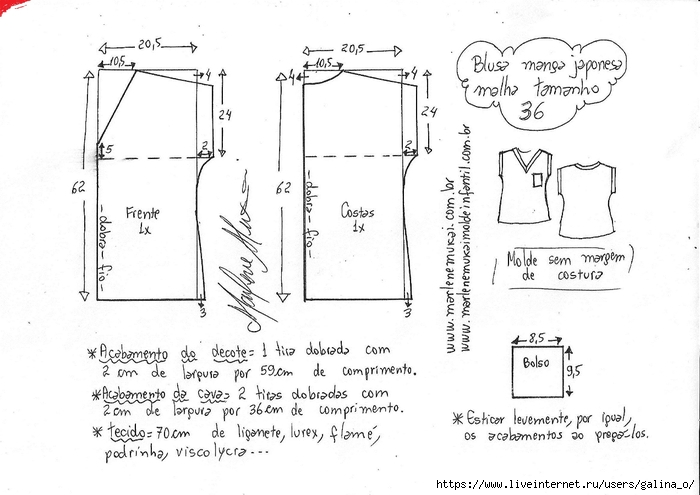 20,5
10,5
4
24
62
5
2
Frente
1x
-dobra-fio-
3
20,5
10,5
4
4
24
62
2
Costas
1x
-dobra-fio-
3
Blusa manga japonesa
malha tamanho
36
www.marlenemukai.com.br
www.marlenemukaimoldeinfantil.com.br
Molde sem margem
de costura
8,5
Bolso
9,5
* Acabamento do decote = 1 tira dobrada com
2 cm de largura por 59cm de comprimento.
* Acabamento da cava = 2 tiras dobradas com
2cm de largura por 36cm de comprimento.
* tecido = 70cm de liganete, lurex, flamê,
podrinha, viscolycra...
* Esticar levemente, por igual,
os acabamentos ao pregá-los.
https://www.liveinternet.ru/users/galina_o/